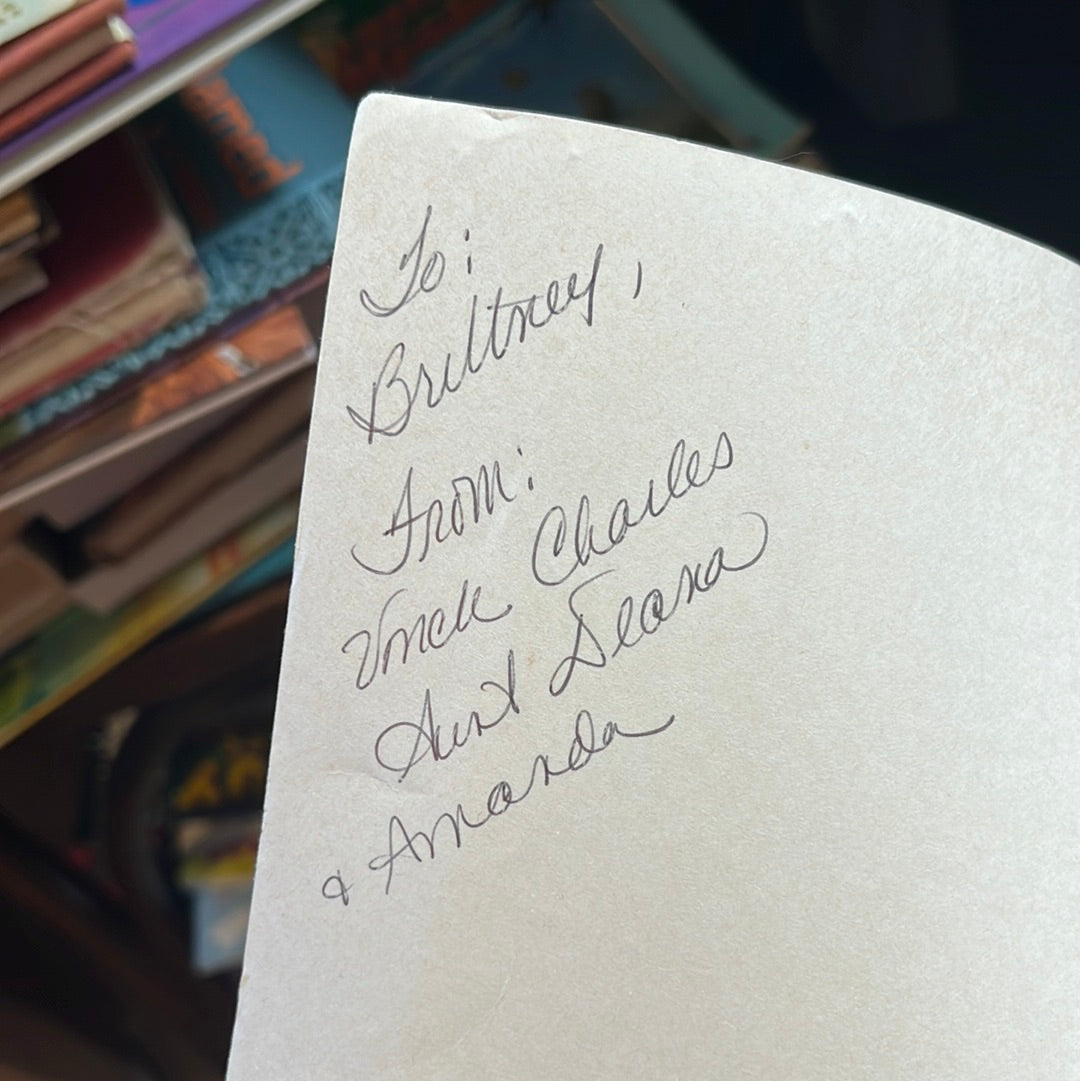 To:
Brittney,
From:
Uncle Charles
Aunt Deana
& Amanda